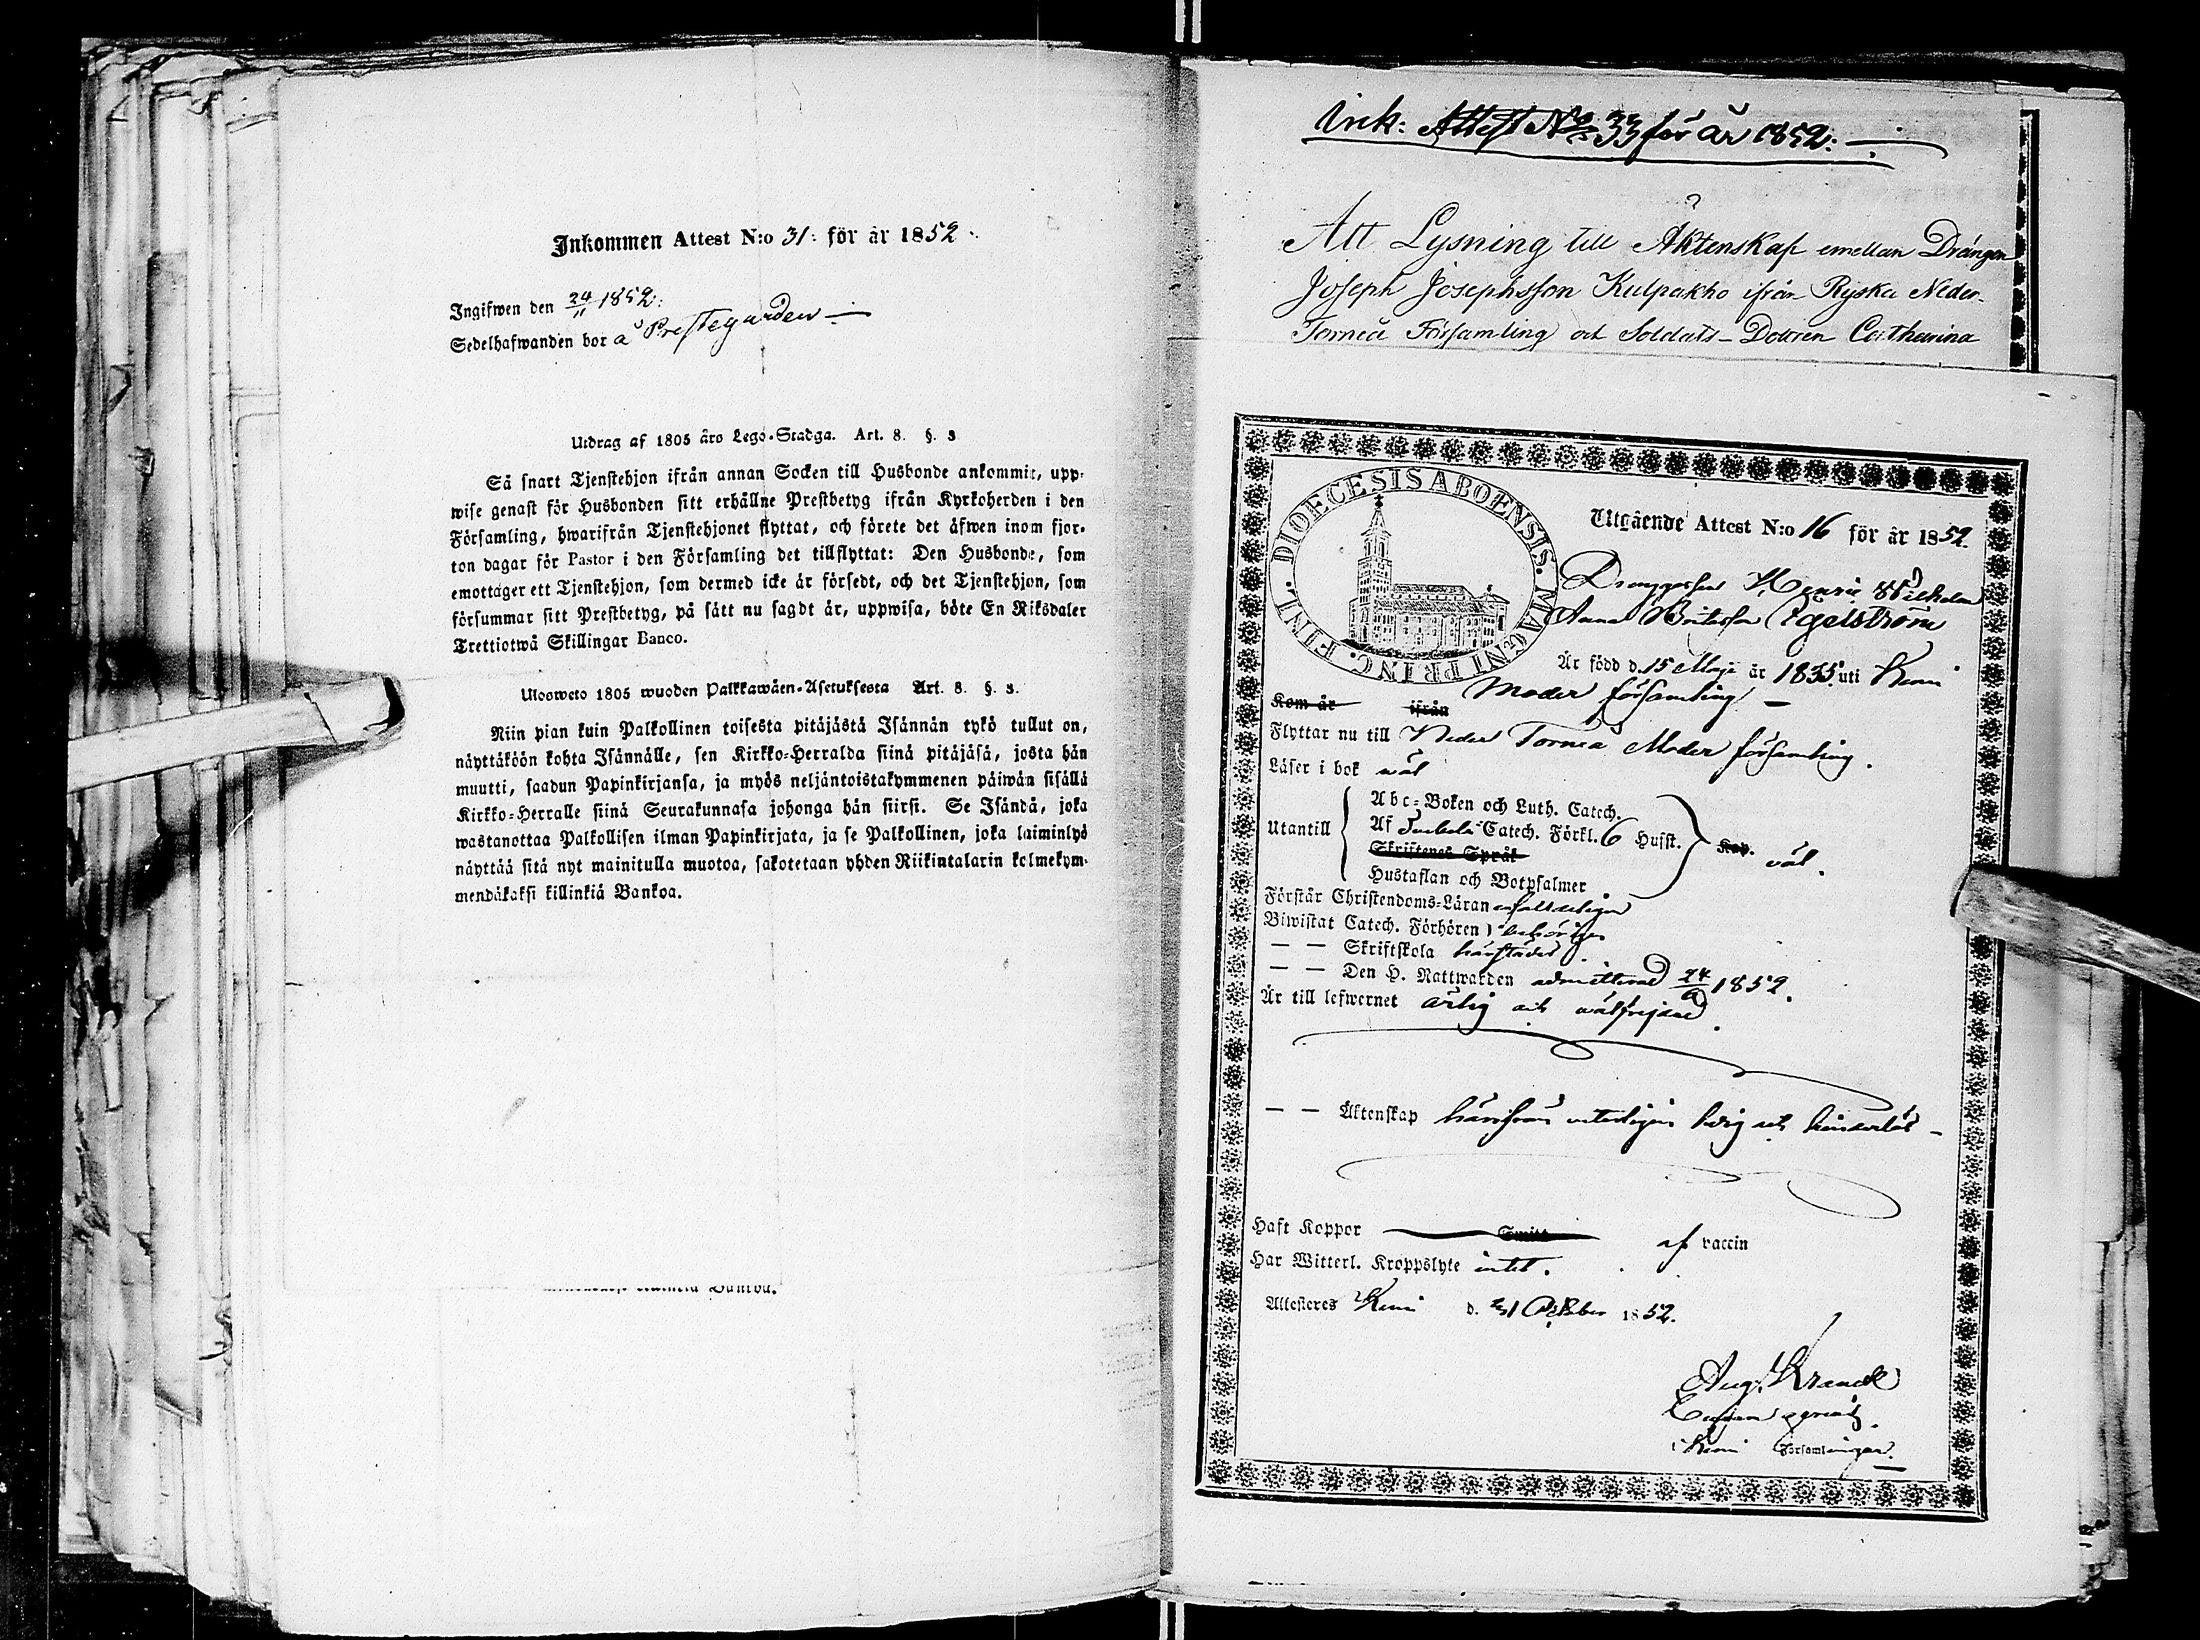 Inkommen Attest N:o 31: för år 1852.
Ingifwen den 24/11 1852:
Sedelhafwanden bor å Prestegården
Utdrag af 1805 års Lego-Stadga. Art. 8. §. 3
Så snart Tjenstehjon ifrån annan Socken till Husbonde ankommit, upp-
wise genast för Husbonden sitt erhållne Prestbetyg ifrån Kyrkoherden i den
Församling, hwarifrån Tjenstehjonet flyttat, och förete det äfwen inom fjor-
ton dagar för Pastor i den Församling det tillflyttat: Den Husbonde, som
emottager ett Tjenstehjon, som dermed icke är försedt, och det Tjenstehjon, som
försummar sitt Prestbetyg, på sätt nu sagdt är, uppwisa, böte En Riksdaler
Trettiotwå Skillingar Banco.
Ulosweto 1805 wuoden Palkkawäen-Asetuksesta Art. 8. §. 3.
Niin pian kuin Palkollinen toisesta pitäjästä Isännän tykö tullut on,
näyttäköön kohta Isännälle, sen Kirkko-Herralda siinä pitäjäsä, josta hän
muutti, saadun Papinkirjansa, ja myös neljäntoistakymmenen päiwän sisällä
Kirkko-Herralle siinä Seurakunnasa johonga hän siirsi. Se Isändä, joka
wastanottaa Palkollisen ilman Papinkirjata, ja se Palkollinen, joka laiminlyö
näyttää sitä nyt mainitulla muotoa, sakotetaan yhden Riikintalarin kolmekym-
mendäkaksi killinkiä Bankoa.
Ink: Attest No 33 för år 1852:
Att Lysning till Äktenskap emellan Drängen
Joseph Josephsson Kulpakko ifrån Ryska Neder-
Torneå Församling och Soldats-Dottren Catharina
DIOECESIS ABOENSIS. MAGNI PRINC. FINL.
Utgående Attest N:o 16 för år 1852.
Henric Wilhelm
Anna Egelström
Är född d. 15 Maji år 1835 uti Kemi
Moder församling
Kom år ifrån
Flyttar nu till Neder Torneå Moder församling.
Läser i bok wäl
Abc-Boken och Luth. Catech.
Utantill Af Catech. Förkl. 6 Hufst. Kap. väl.
Skriftenes Språk
Hustaflan och Botpsalmer
Förstår Christendoms-Läran enfaldeligen
Biwistat Catech. Förhören behörigen
— — Skriftskola härstädes
— — Den H. Nattwarden admitterad 24/6 1852.
Är till lefwernet ärlig och wälfrejdad
— — Äktenskap härifrån veterligen ledig och hinderlös
Haft Koppor Smitt af vaccin
Har Witterl. Kroppslyte intet.
Attesteres Kemi d. 31 October 1852.
Aug.
i Kemi Församlingar.